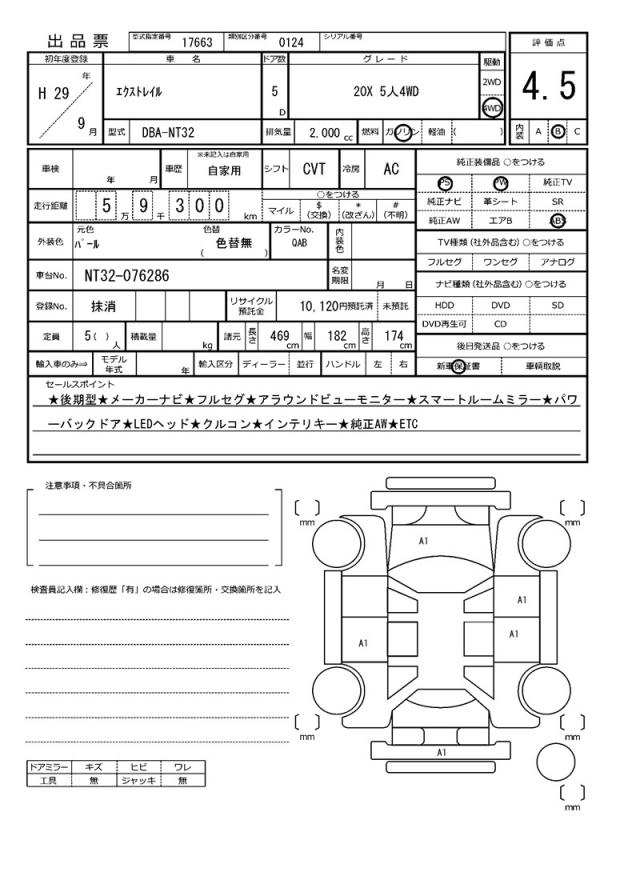 出品票
型式指定番号 17663 類別区分番号 0124 シリアル番号
初年度登録 車名 ドア数 グレード 駆動 評価点
H 29 年 9 月
エクストレイル
5 D
20X 5人4WD
2WD
4WD
4.5
型式 DBA-NT32 排気量 2,000 cc 燃料 ガソリン 軽油 ( )
内装 A B C
車検 年 月 車歴 ※未記入は自家用 自家用 シフト CVT 冷房 AC
走行距離 5 万 9 千 3 0 0 km
○をつける
マイル $ (交換) * (改ざん) # (不明)
外装色 元色 パール 色替 色替無 ( ) カラーNo. QAB 内装色
車台No. NT32-076286 名変期限 月 日
登録No. 抹消 リサイクル預託金 10,120円預託済 未預託
定員 5( ) 人 積載量 kg 諸元 長さ 469 cm 幅 182 cm 高さ 174 cm
輸入車のみ⇒ モデル年式 年 輸入区分 ディーラー 並行 ハンドル 左 右
純正装備品 ○をつける
PS PW 純正TV
純正ナビ 革シート SR
純正AW エアB ABS
TV種類 (社外品含む) ○をつける
フルセグ ワンセグ アナログ
ナビ種類 (社外品含む) ○をつける
HDD DVD SD
DVD再生可 CD
後日発送品 ○をつける
新車保証書 車輌取説
セールスポイント
★後期型★メーカーナビ★フルセグ★アラウンドビューモニター★スマートルームミラー★パワ
ーバックドア★LEDヘッド★クルコン★インテリキー★純正AW★ETC
注意事項・不具合箇所
検査員記入欄：修復歴「有」の場合は修復箇所・交換箇所を記入
ドアミラー キズ ヒビ ワレ
工具 無 ジャッキ 無
mm
mm
A1
A1
A1
A1
mm
mm
A1
mm